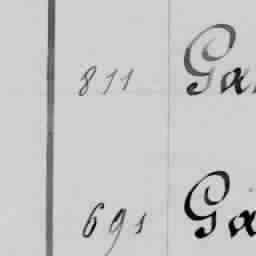 811 Ga
691 Ga